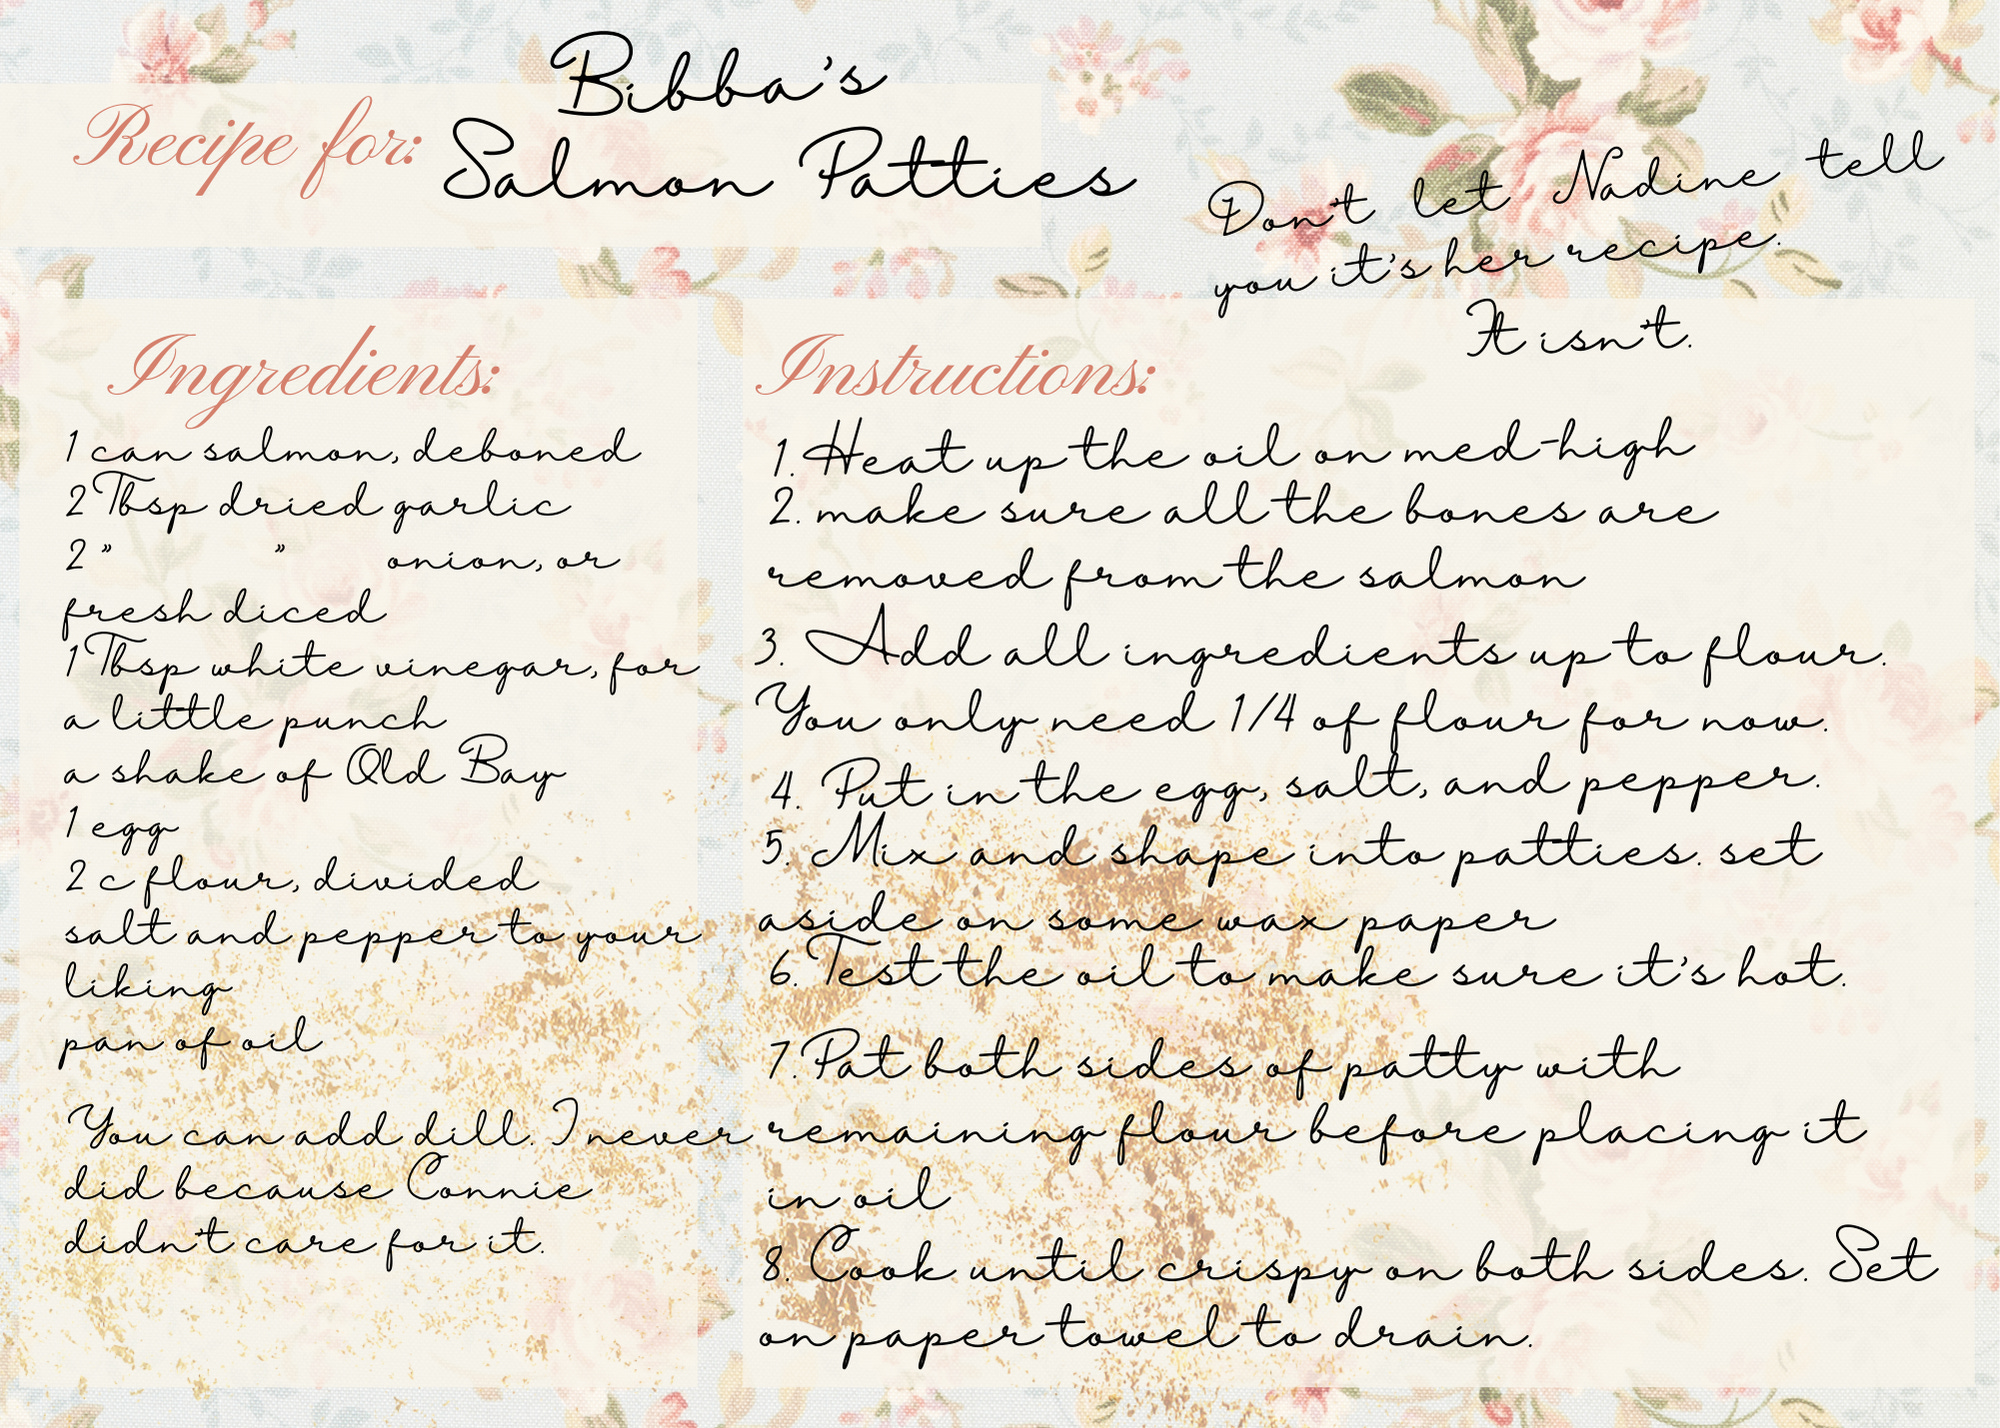 Bibba's
Recipe for: Salmon Patties
Don't let Nadine tell
you it's her recipe.
It isn't.
Ingredients:
1 can salmon, deboned
2 Tbsp dried garlic
2 " " onion, or
fresh diced
1 Tbsp white vinegar, for
a little punch
a shake of Old Bay
1 egg
2 c flour, divided
salt and pepper to your
liking
pan of oil
You can add dill. I never
did because Connie
didn't care for it.
Instructions:
1. Heat up the oil on med-high
2. make sure all the bones are
removed from the salmon
3. Add all ingredients up to flour.
You only need 1/4 of flour for now.
4. Put in the egg, salt, and pepper.
5. Mix and shape into patties. set
aside on some wax paper
6. Test the oil to make sure it's hot.
7. Pat both sides of patty with
remaining flour before placing it
in oil
8. Cook until crispy on both sides. Set
on paper towel to drain.